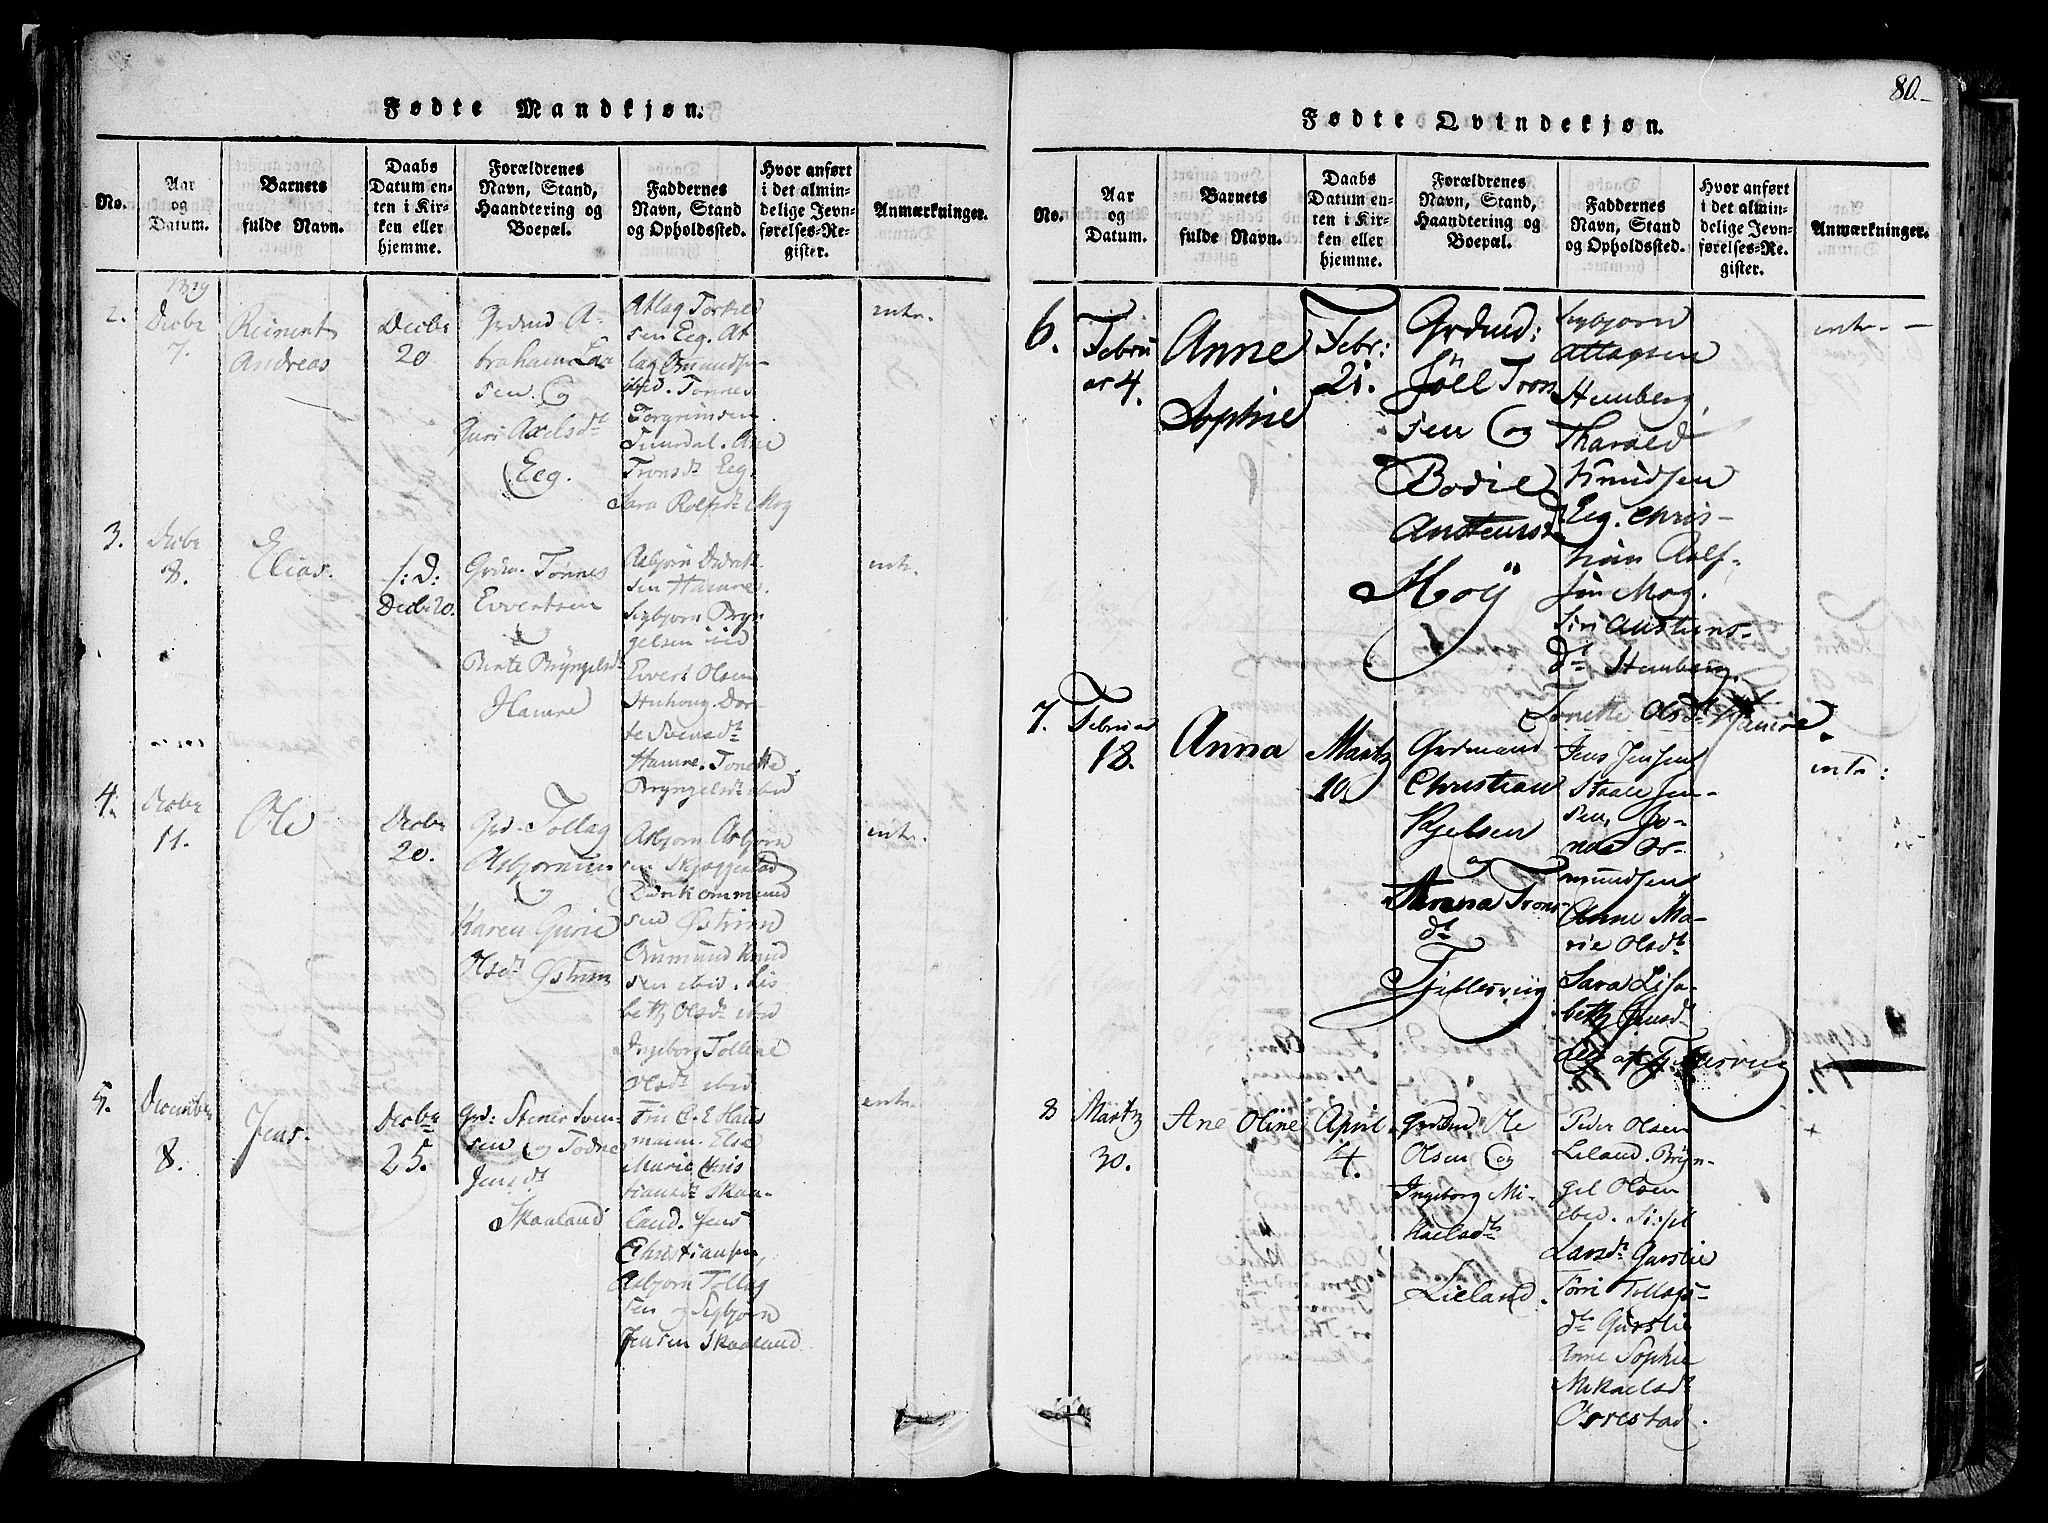 80.
Fødte Mandkjøn.
No.
Aar
og
Datum.
Barnets
fulde Navn.
Daabs
Datum en-
ten i Kir-
ken eller
hjemme.
Forældrenes
Navn, Stand,
Haandtering og
Boepæl.
Faddernes
Navn, Stand
og Opholdssted.
Hvor anført
i det almin-
delige Jevn-
førelses-Re-
gister.
Anmærkninger.
2.
1819
Decbr
7.
Reinert
Andreas
Decbr
20.
Grdmd A-
braham Lar
sen. og
Guri Axelsdt
Eeg.
Atlag Torkel
sen Eeg. At
lag Gumunds-
ibid. Tonnes
Torgrimsen
Ane
Tronsdt Eeg.
Sara Rolfsdt Mog
intr.
3.
Decbr
8.
Elias.
/:D:
Decbr 20.
Grdm. Tønnes
Evertsen
&
Berte Bryngelsdt
Hamre
Asbjørn Didrik
sen Hamre.
Sigbjørn Bryn
gelsen ibid
Evert Olsen
Dor-
te Svensdt
Hamre. Tonette
Bryngelsdt ibid
intr.
4.
Decbr
11.
Ole
Decbr
20.
Grd. Tollag
Asbjørnsen
og
Karen Gurie
Olsdt Østrim
Asbjørn Asbjørn
sen Skjeggestad
Didrik Ommund
sen Østrim
Gumund Knud
sen ibid. Lis
beth Olsdt ibid
Ingeborg Tolline
Olsdt ibid
intr.
5.
December
8.
Jens.
Decbr
25.
Grd: Stener Sven-
sen og Todne
Jensdt
Skaaland
Fru C. E. Haus
mann. Else
Marie Chris
tiansdt Skaa-
land. Jens
Christiansen,
Asbjørn Tollag
sen og Sigbjørn
Jensen Skaaland
intr.
Fødte Qvindekjøn.
No.
Aar
og
Datum.
Barnets
fulde Navn.
Daabs
Datum en-
ten i Kir-
ken eller
hjemme.
Forældrenes
Navn, Stand,
Haandtering og
Boepæl.
Faddernes
Navn, Stand
og Opholdssted.
Hvor anført
i det almin-
delige Jevn-
førelses-Re-
gister.
Anmærkninger.
6.
Febru
ar 4.
Anne
Sophie
Febr:
21.
Grdmd:
Jöel Tron
sen og
Bodil
Austensdt
Moÿ
Sigbjørn
Attlagsen
Humberg,
Tharald
Knudsen
Eeg. Chris-
tian Rolf-
sen Mog.
Siri Austens-
dt Humberg.
Tonette Olsdt Hamre
intr.
7.
Februar
18.
Anna
Martz
10.
Grdmand
Christian
Kjelsen
og
Anna Trons-
dt
Tjillesvig
Jens Jensen
Staale Jen-
sen, Jo-
nas Os-
mundsen
Anne Ma-
rie Olsdt
Sara Lisa-
beth Jensdt
intr:
8
Martz
30.
Ane Oline
April
4.
Grdmd Ole
Olsen og
Ingeborg Mi-
kaelsdt
Lieland.
Peder Olsen
Leland. Bryn-
gel Olsen
ibid. Sispl
Larsdt Gurslie
Tørri Tollags-
dt Gurslie
Anne Sophie
Mikaelsdt
Ørrestad.
+